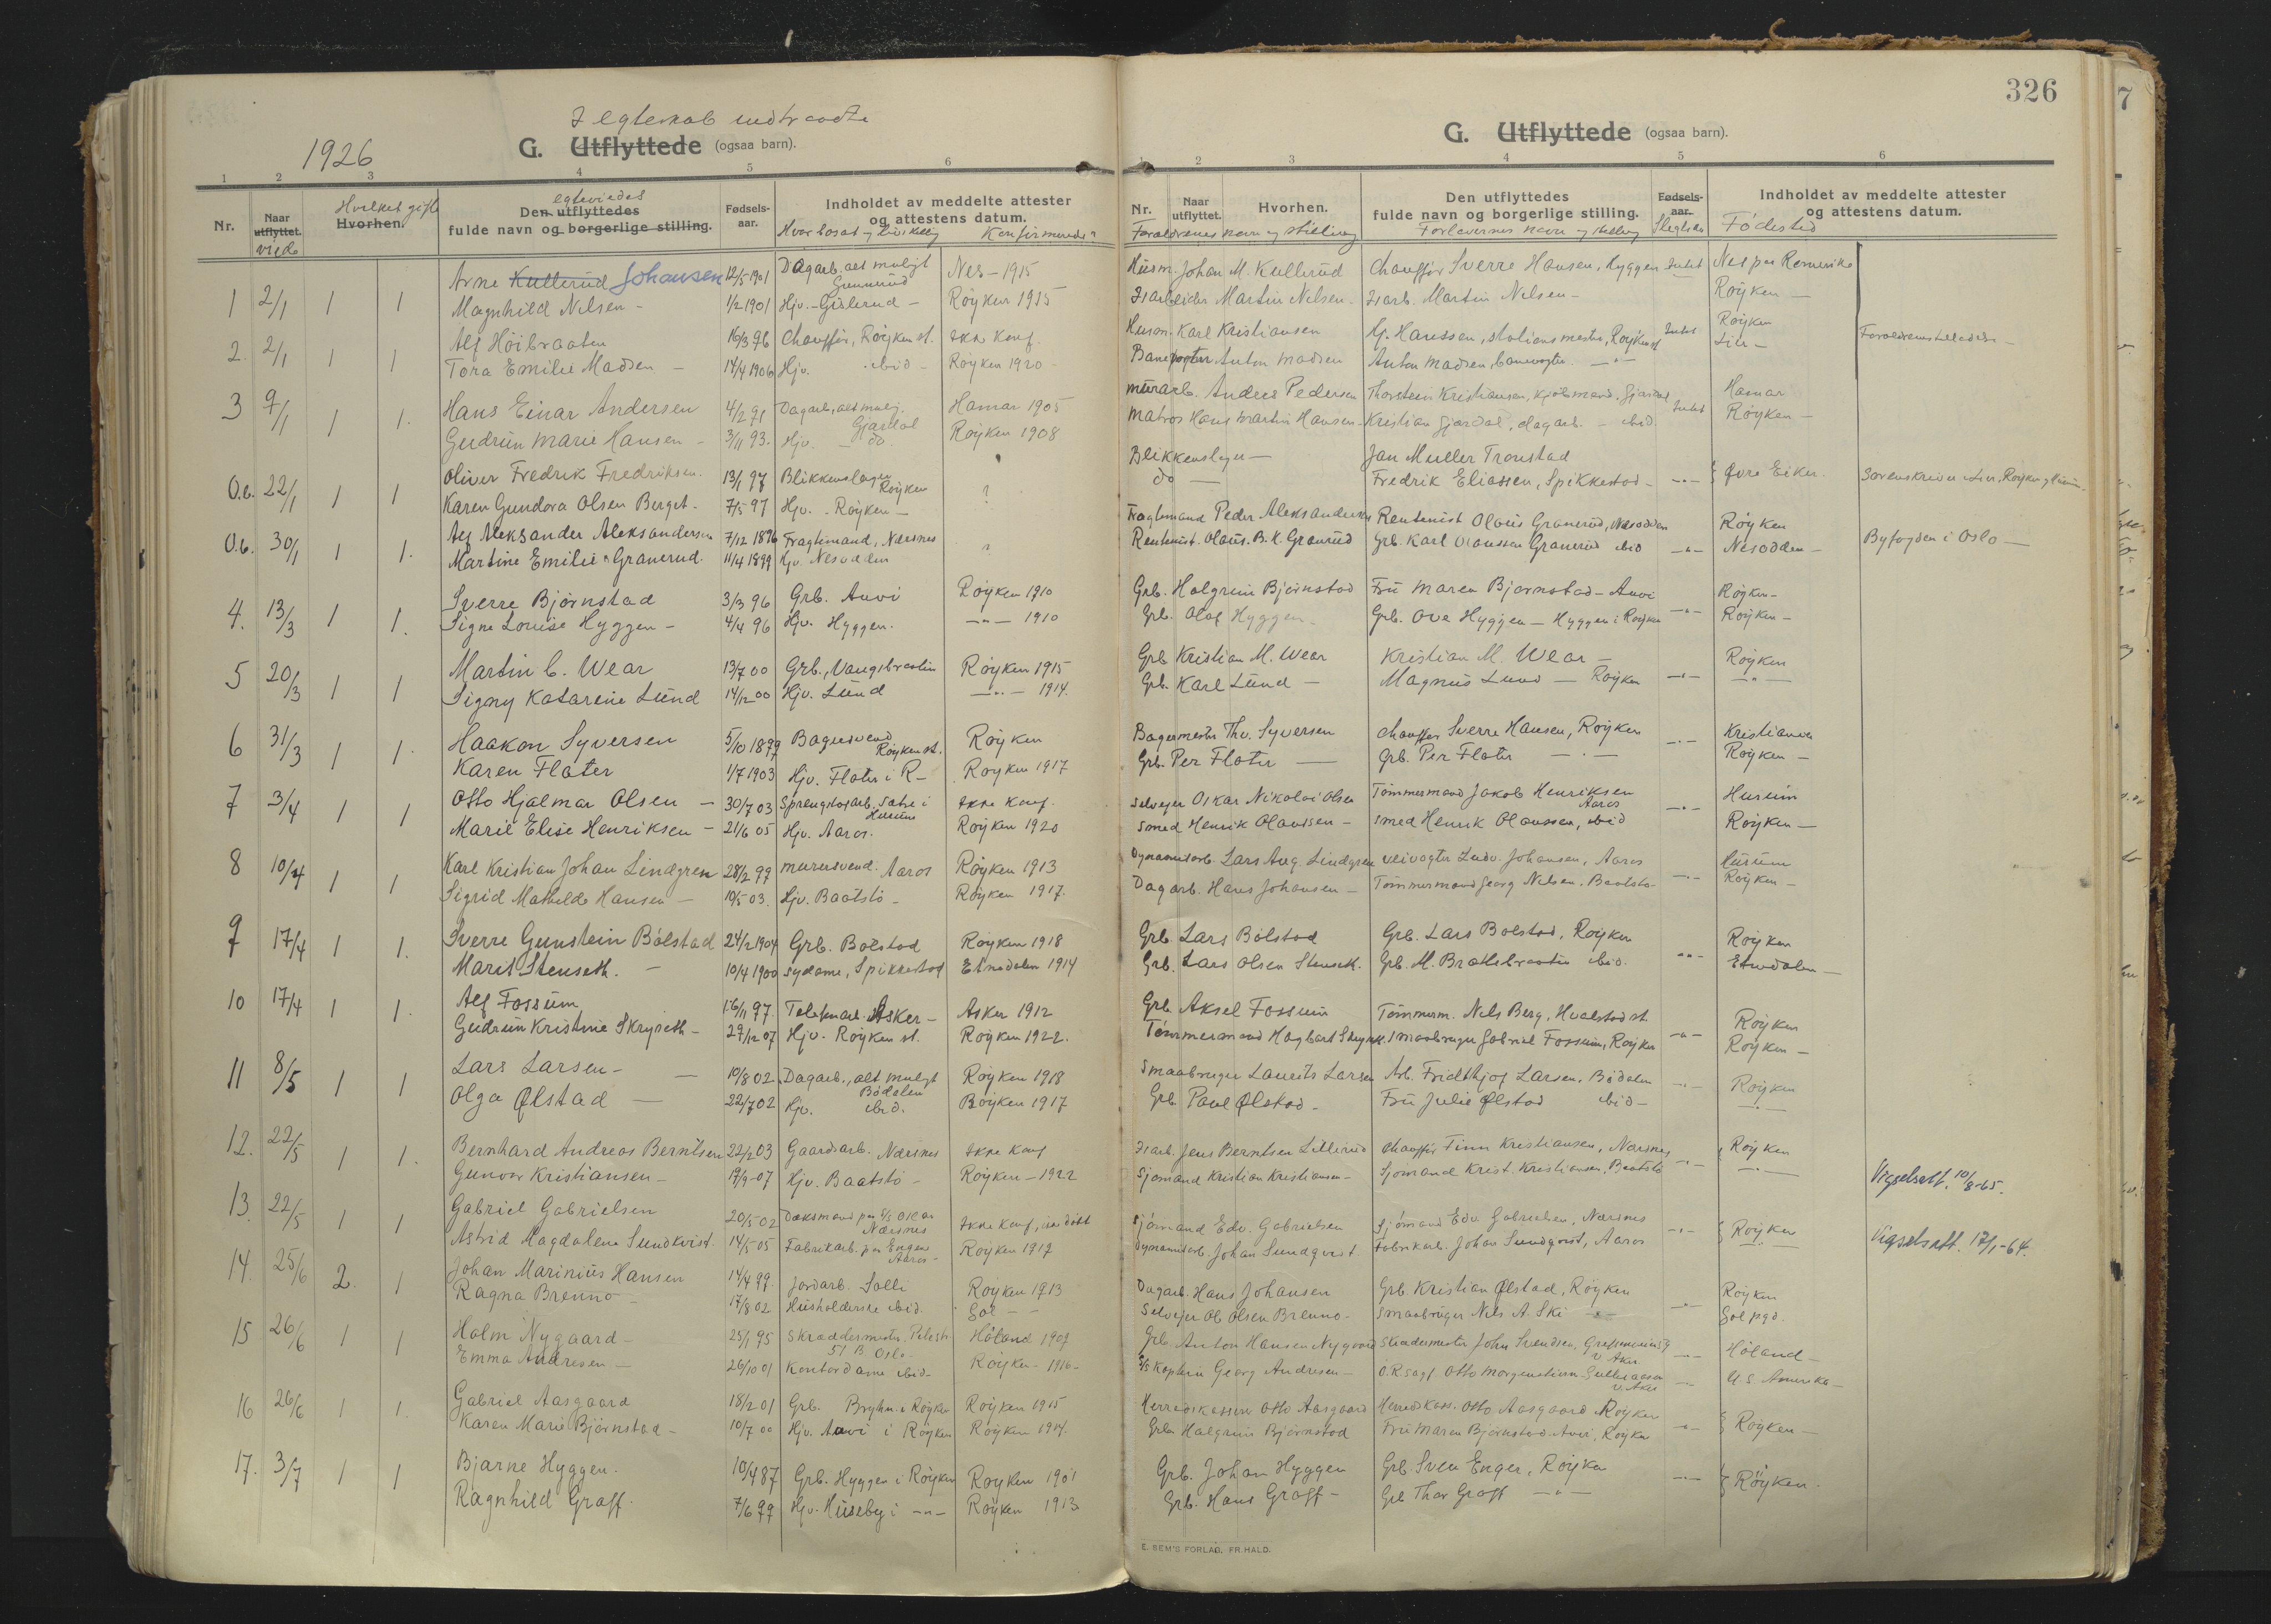 I egteskab indtraadte
G. Utflyttede (ogsaa barn).
1926
1 2 3 4 5 6
Nr.
Naar utflyttet.
viede
Hvilket gifte
Hvorhen.
egteviedes
Den utflyttedes
fulde navn og borgerlige stilling.
Fødsels-
aar.
Indholdet av meddelte attester
og attestens datum.
Hvor bosat og livsstilling Konfirmeredes
Arne Kullerud Johansen 12/5 1901 Dagarb. alt muligt Nes - 1915
Gunnerud
1 2/1 1 1
Magnhild Nilsen - 1/2 1901 Hjv. - Gislerud - Røyken 1915
Alf Höibraaten 16/3 96 Chauffør, Røyken st. Ikke konf.
2. 2/1 1 1
Tora Emilie Madsen - 14/4 1906 Hjv. ibid - Røyken 1920 -
3 9/1 1 1.
Hans Einar Andersen 4/2 91 Dagarb, alt mulig. Hamar 1905
Gjærdal
Gudrun Marie Hansen - 3/11 93. Hjv. - do. Røyken 1908
Oliver Fredrik Fredriksen. 13/1 97 Blikkenslager
Røyken
O.b. 22/1 1 1
Karen Gundora Olsen Berget. 7/5 97 Hjv. - Røyken - ?
Alf Aleksander Aleksandersen 7/12 1896 Fragtemand, Nærsnes
O.b. 30/1 1 1.
Martine Emilie Granerud. 11/4 1899 Hjv. Nesodden
Sverre Bjørnstad 3/3 96 Grb. Auvi Røyken 1910
4. 13/3 1 1.
Signe Louise Hyggen - 4/4 96 Hjv. Hyggen. -"- 1910
Martin C. Wear 13/7 00 Grb., Vaugsbraatin Røyken 1915
5 20/3 1 1
Signy Katarine Lund 14/12 00 Hjv. Lund -"- 1914.
6 31/3 1 1.
Haakon Syversen 5/10 1899 Bagersvend Røyken
Røyken st.
Karen Flater 1/7 1903 Hjv. Flater i R- Røyken 1917
7 3/4 1 1
Otto Hjalmar Olsen - 30/7 03 Sprengstofarb. Sætre i Ikke konf.
Hurum
Marie Elise Henriksen - 21/6 05 Hjv. Aaros. Røyken 1920
8 10/4 1 1
Karl Kristian Johan Lindgren 28/2 99 Murersvend. Aaros Røyken 1913
Sigrid Mathilde Hansen - 10/5 03. Hjv. Baatstö - Røyken 1917.
9 17/4 1 1.
Sverre Gunstein Bölstad 24/2 1904 Grb. Bölstad Røyken 1918
Marit Stenseth. - 10/4 1900 Sydame, Spikkestad Etnedalen 1914
10 17/4 1 1.
Alf Fossum 16/11 97. Telefonarb. Asker - Asker 1912
Gudrun Kristine Skryseth - 29/12 07 Hjv. Røyken st. Røyken 1922.
11 8/5 1 1
Lars Larsen - 10/8 02 Dagarb., alt muligt Røyken 1918
Bödalen
Olga Ølstad - 22/7 02 Hjv. ibid. Røyken 1917
12. 22/5 1 1.
Bernhard Andreas Berntsen 22/2 03 Gaardsarb. Nærsnes Ikke konf
Gunvor Kristiansen - 19/9-07 Hjv. Baatstö - Røyken - 1922
13. 22/5 1 1
Gabriel Gabrielsen 20/5 02 Dæksmand paa S/S
Nærsnes Ikke konf,
Astrid Magdalene Sundkvist. 14/5 05 Fabrikarb. paa Engene Røyken 1919
Aaros -
14. 25/6 2. 1
Johan Marinius Hansen 14/4 99. Jordarb. Solli Røyken 1913
Ragna Brenno - 17/8 02 Husholderske ibid. Gol - -
15 26/6 1 1
Holm Nygaard - 25/1 95 Skræddermester, Pilestr. Höland 1909
51 B Oslo -
Emma Andresen - 26/10 01 Kontordame ibid - Røyken - 1916 -
16 26/6 1 1.
Gabriel Aasgaard 18/2 01 Grb. Bryhn. i Røyken Røyken 1915
Karen Marie Björnstad - 10/7 00 Hjv. Auvi i Røyken Røyken 1914.
17. 3/7 1 1
Bjarne Hyggen. 10/4 87 Grb. Hyggen i Røyken Røyken 1901
Ragnhild Graff. 7/6 99 Hjv. Huseby i -"- Røyken 1913
326
G. Utflyttede (ogsaa barn).
1 2 3 4 5 6
Nr.
Naar utflyttet.
Hvorhen.
Forældrenes navn og stilling
Den utflyttedes
fulde navn og borgerlige stilling.
Forlovernes navn og stilling
Fødsels-
aar.
Slegtsk.
Indholdet av meddelte attester
og attestens datum.
Fødested
Husm. Johan M. Kullerud Chauffør Sverre Hansen, Hyggen Intet Nes paa Romerike
Isarbeider Martin Nilsen - Isarb. Martin Nilsen - Røyken -
Husm. Karl Kristiansen Hj. Hanssen, stationsmester, Røyken st Intet Røyken
Forældrenes tilladelse -
Banevogter Anton Madsen Anton Madsen, banevogter. -"- Lier -
Murarb. Anders Pedersen Thorstein Kristiansen, kjøbmand, Gjærdal Hamar
Intet
Matros Hans Martin Hansen - Kristian Gjærdal, dagarb. - ibid. Røyken -
Blikkenslager - Jan Muller Tronstad
do - Fredrik Eliassen, Spikkestad - -"- Øvre Eiker.
Sorenskriver i Lier, Røyken og Hurum -
Fragtemand Peder Aleksandersen Rentenist Olaus Granerud, Nesodden Røyken
Rentenist. Olaus. B. K. Granrud Grb. Karl Olaussen Granerud ibid -"- Nesodden -
Byfogden i Oslo -
Grb. Halgrim Björnstad Fru Maren Bjørnstad - Auvi Røyken -
Grb. Olaf Hyggen - Grb. Ove Hyggen - Hyggen i Røyken -"- Røyken -
Grb Kristian M. Wear Kristian M. Wear - Røyken
Grb. Karl Lund - Magnus Lund - Røyken -"- -"-
Bagermester Thv. Syversen Chauffør Sverre Hansen, Røyken Kristiania
Grb. Per Flater - Grb. Per Flater -"- -"- Røyken -
Selveier Oskar Nikolai Olsen Tömmermand Jakob Henriksen Hurum
Aaros
Smed Henrik Olaussen - Smed Henrik Olaussen, ibid -"- Røyken -
Dynamitarb. Lars Aug. Lindgren Veivogter Ludv. Johansen, Aaros Hurum
Dagarb. Hans Johansen - Tömmermand Georg Nilsen. Baatstö -"- Røyken -
Grb. Lars Bölstad Grb. Lars Bolstad, Røyken Røyken
Grb. Lars Olsen Stenseth. Grb. M. Brættebraaten ibid. -"- Etnedalen -
Grb. Aksel Fossum Tömmerm. Nils Berg, Hvalstad st. Røyken
Tömmermand Hagbart Skryseth. Smaabruger Gabriel Fossum, Røyken -"- Røyken -
Smaabruger Laurits Larsen Arb. Fridthjof Larsen, Bödalen Røyken
Grb. Paul Ølstad - Fru Julie Ølstad ibid - -"- -"-
Isarb. Jens Berntsen Lillerud Chauffør Finn Kristiansen, Nærsnes Røyken
Sjömand Kristian Kristiansen - Sjömand Krist. Kristiansen, Baatstö -"- -"-
Vigselsatt. 10/8-65.
Sjömand Edv. Gabrielsen Sjömand Edv. Gabrielsen, Nærsnes
Dynamitarb. Johan Sundqvist. Fabrikarb. Johan Sundqvist, Aaros -"- Røyken
Vigselsatt. 17/1-64.
Dagarb. Hans Johansen Grb. Kristian Ølstad, Røyken Røyken
Selveier Ol. Olsen Brenno - Smaabruger Nils A. Ski -"- -"- Gol pgd.
Grb. Anton Hansen Nygaard Skrædermester John Svendsen, Höland -
v. Aker
S/S Kaptein Georg Andresen - O.R.sagf. Otto Morgenstierne -"- U.S. Amerika -
v. Aker
Herredskasserer Otto Aasgaard Herredskass. Otto Aasgaard Røyken
Grb. Halgrim Bjørnstad Fru Maren Bjørnstad, Auvi, Røyken -"- Røyken -
Grb. Johan Hyggen Grb. Sven Enger, Røyken
Grb. Hans Graff - Grb Thor Graff -"- -"- Røyken.
E. SEM'S FORLAG, FR.HALD.
7